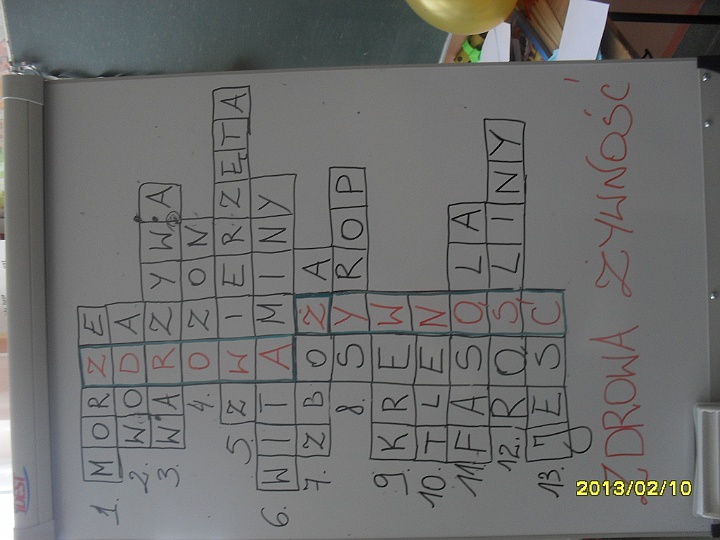 1. MORZE
2. WODA
3. WARZYWA
4. OZON
5. ZWIERZĘTA
6. WITAMINY
7. ZBOŻA
8. SYROP
9. KREW
10. TLEN
11. FASOLA
12. ROŚLINY
13. JEŚĆ
ZDROWA ŻYWNOŚĆ
2013/02/10